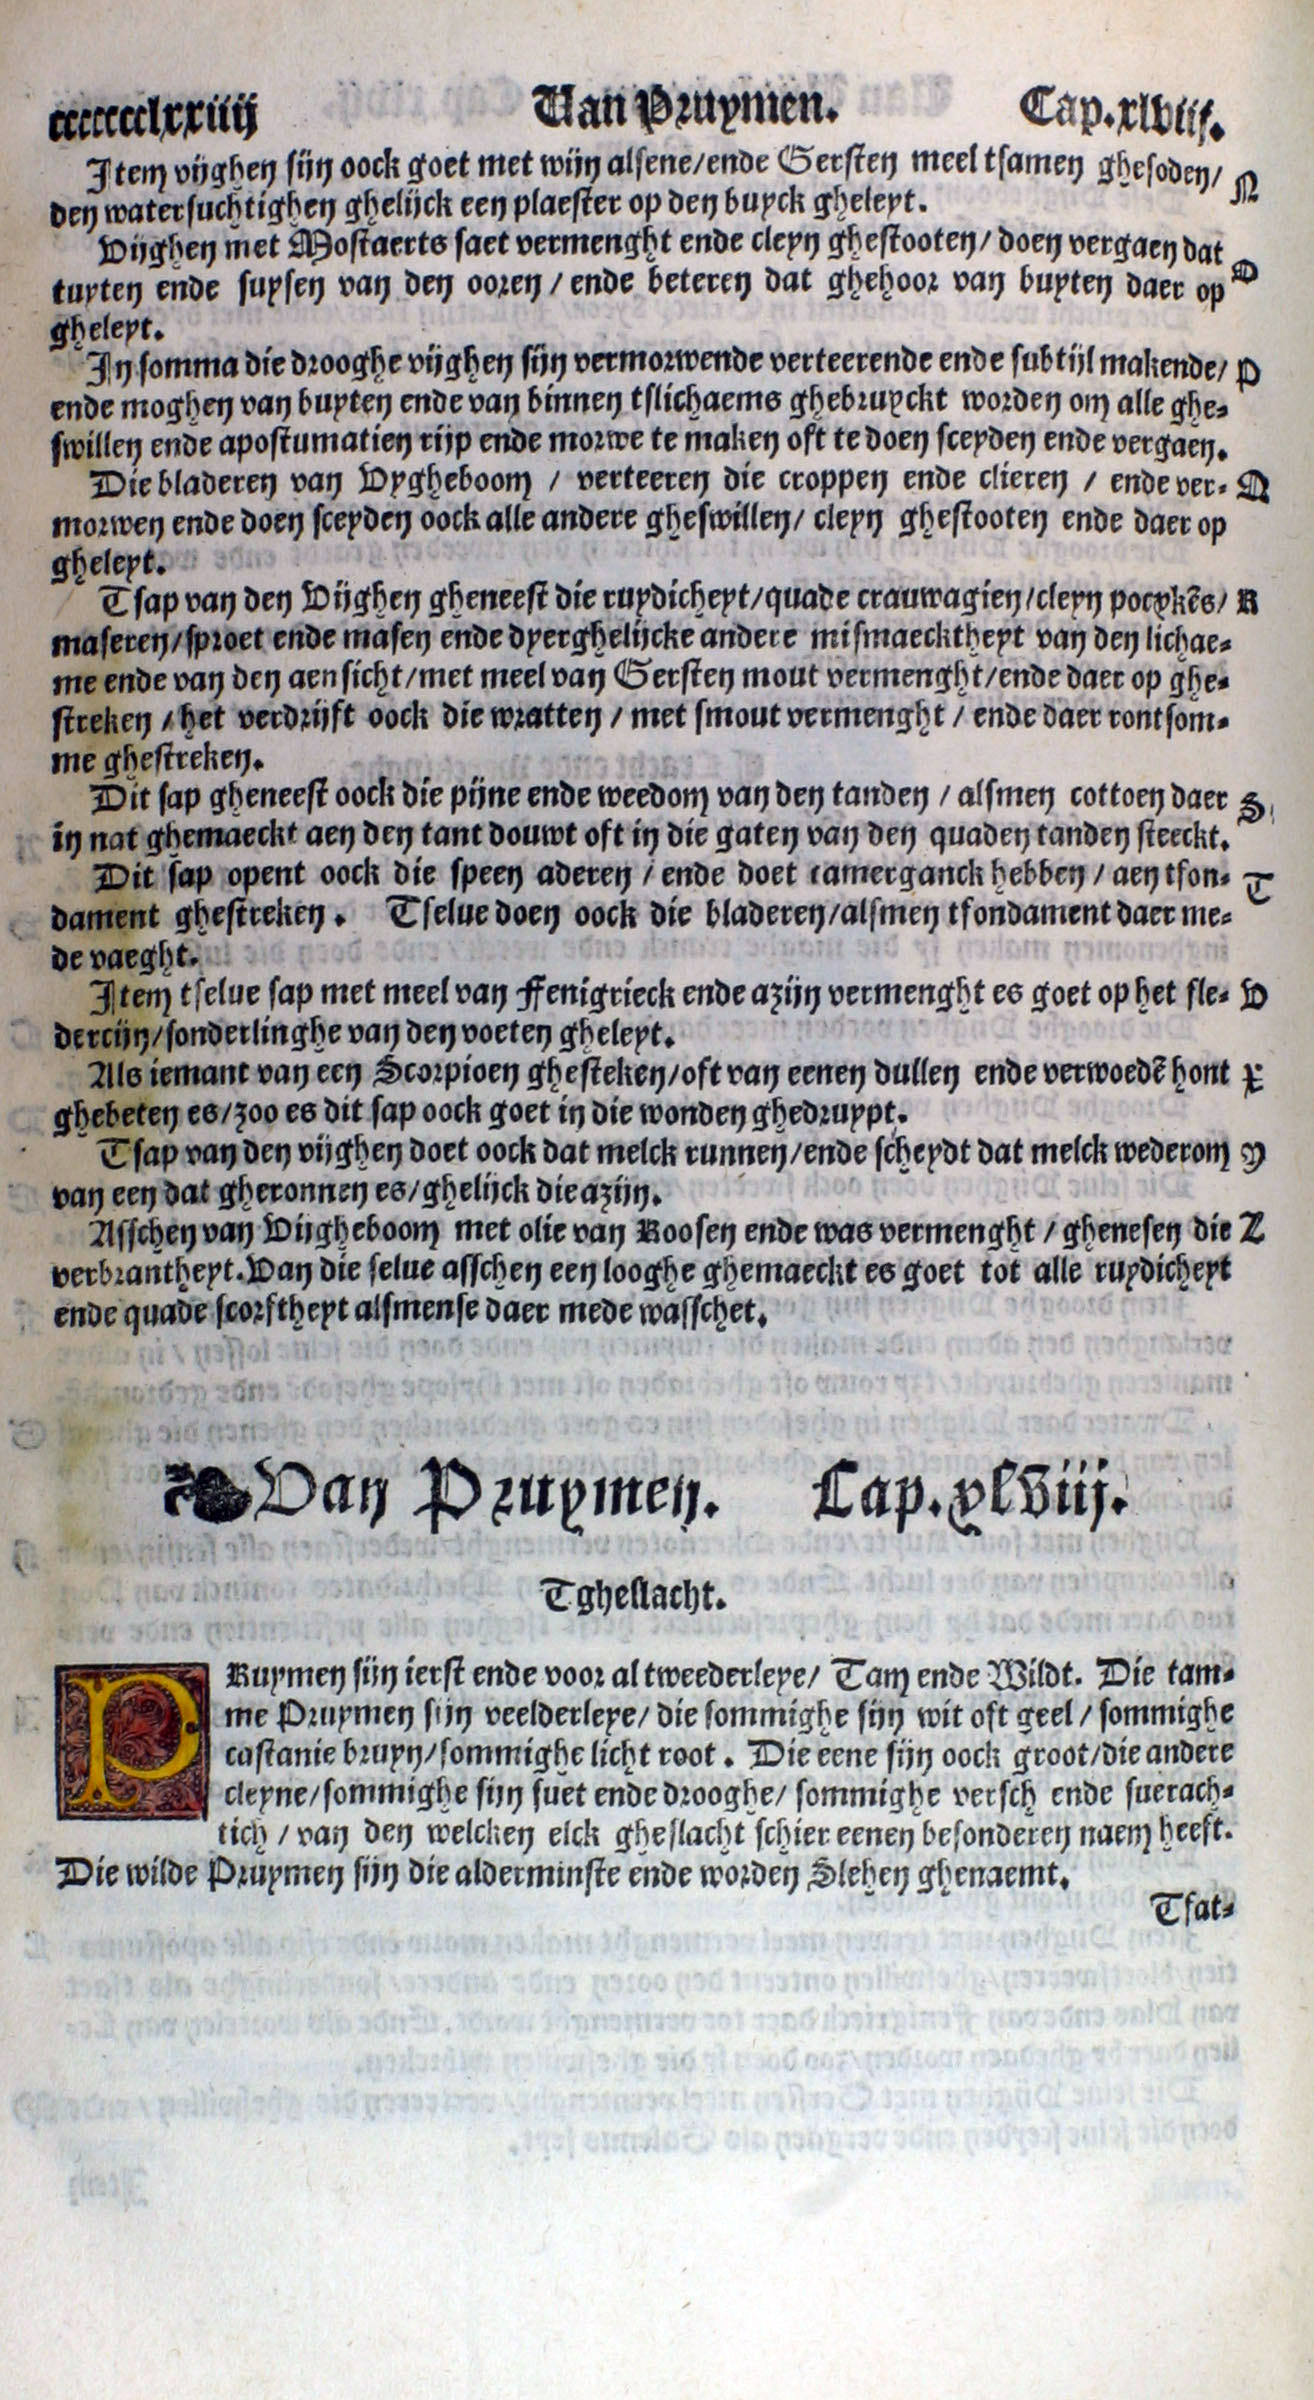 ccccccclxxiiij Van Pruymen. Cap. xlviij.
Item vijghen sijn oock goet met wijn alsene/ende Gersten meel tsamen ghesoden/ N
den watersuchtighen ghelijck een plaester op den buyck gheleyt.
Vijghen met Mostaerts saet vermenght ende cleyn ghestooten/ doen vergaen dat
tuyten ende suysen van den ooren / ende beteren dat ghehoor van buyten daer op O
gheleyt.
In somma die drooghe vijghen sijn vermorwende verteerende ende subtijl makende/ P
ende moghen van buyten ende van binnen tslichaems ghebruyckt worden om alle ghe-
swillen ende apostumatien rijp ende morwe te maken oft te doen sceyden ende vergaen.
Die bladeren van Vygheboom / verteeren die croppen ende clieren / ende ver- Q
morwen ende doen sceyden oock alle andere gheswillen/ cleyn ghestooten ende daer op
gheleyt.
Tsap van den Vijghen gheneest die ruydicheyt/quade crauwagien/cleyn pocxkēs/ R
maseren/sproet ende masen ende dyerghelijcke andere mismaecktheyt van den lichae-
me ende van den aensicht/met meel van Gersten mout vermenght/ende daer op ghe-
streken / het verdrijft oock die wratten / met smout vermenght / ende daer rontsom-
me ghestreken.
Dit sap gheneest oock die pijne ende weedom van den tanden / alsmen cottoen daer S
in nat ghemaeckt aen den tant douwt oft in die gaten van den quaden tanden steeckt.
Dit sap opent oock die speen aderen / ende doet camerganck hebben / aen tfon- T
dament ghestreken. Tselue doen oock die bladeren/alsmen tfondament daer me-
de vaeght.
Item tselue sap met meel van Fenigrieck ende azijn vermenght es goet op het fle- V
dercijn/sonderlinghe van den voeten gheleyt.
Als iemant van een Scorpioen ghesteken/oft van eenen dullen ende verwoedē hont X
ghebeten es/zoo es dit sap oock goet in die wonden ghedruypt.
Tsap van den vijghen doet oock dat melck runnen/ende scheydt dat melck wederom Y
van een dat gheronnen es/ghelijck die azijn.
Asschen van Vijgheboom met olie van Roosen ende was vermenght / ghenesen die Z
verbrantheyt. Van die selue asschen een looghe ghemaeckt es goet tot alle ruydicheyt
ende quade scorftheyt alsmense daer mede wasschet.
Van Pruymen. Cap. xlviij.
Tgheslacht.
PRuymen sijn ierst ende voor al tweederleye/ Tam ende Wildt. Die tam-
me Pruymen sijn veelderleye/ die sommighe sijn wit oft geel / sommighe
castanie bruyn/sommighe licht root. Die eene sijn oock groot/die andere
cleyne/sommighe sijn suet ende drooghe/ sommighe versch ende suerach-
tich / van den welcken elck gheslacht schier eenen besonderen naem heeft.
Die wilde Pruymen sijn die alderminste ende worden Slehen ghenaemt.
Tfat-